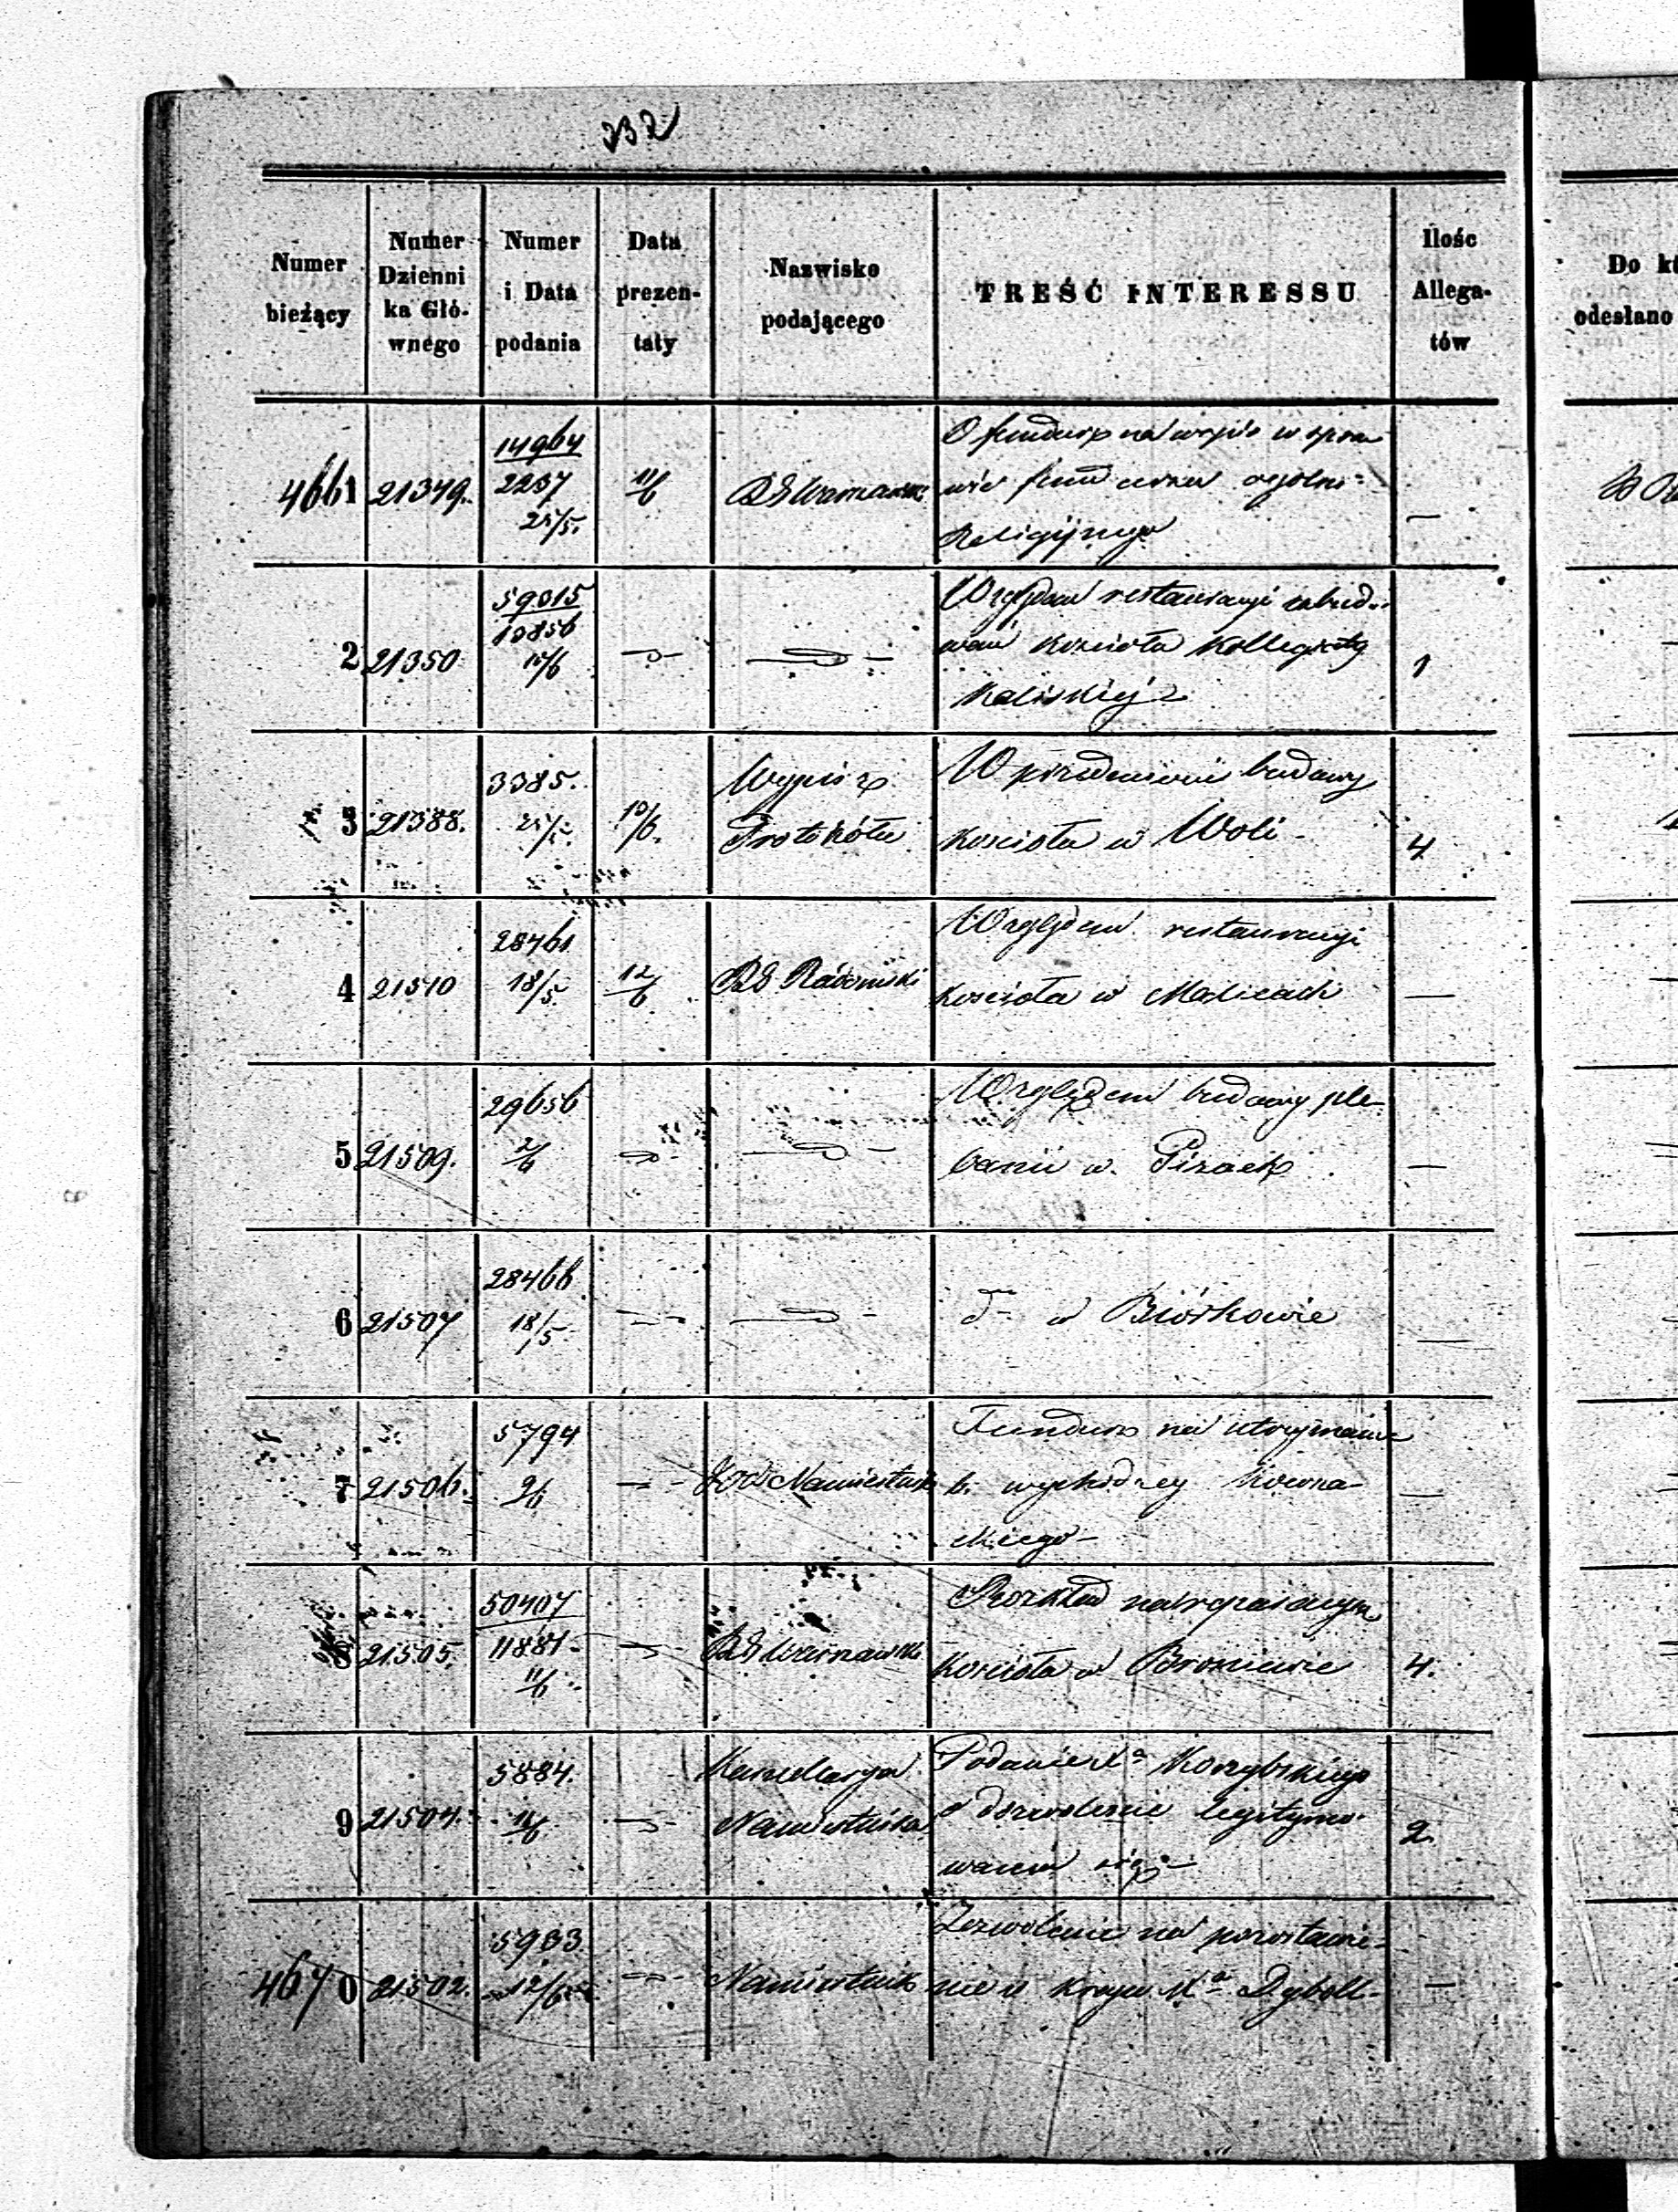 232
Numer bieżący
Numer Dzienni ka Głó- wnego
Numer i Data podania
Data prezen- taty
Nazwisko podającego
TREŚĆ INTERESSU
Ilośc Allega- tów
Do k
odesłano
4661 21349. 14964 2237 25/5. 11/6 RG Warszaws.
O fundusz na wpis w spra
wie
Religijnego
—
2 21350 59015 10856 10/6
Względem restauracyi zabudo
wań Kościoła Kollegiaty
Kaliskiéj
1
3 21388. 3385. 25/5. 10/6.
Wypis z
Protokółu
W przedmiocie budowy
Kościoła w Woli
4
4 21510 28461 18/5. 12/6 RG Radomski
Względem restauracyi
Kościoła w Malicach
—
5 21509. 29656 2/6
Względem budowy ple-
banii w
—
6 21507 28466 18/5
dto w Biórkowie
—
7 21506. 5794 9/6 Namiestnik
Fundusz na utrzymanie
b. wychodzcy
ckiego
—
8 21505. 50407 11881 11/6 RG Warszawski
Rozkład na reparacyą
Kościoła w Broniewie
4.
9 21504. 5884. 11/6
Kancellarya
Namiestnika
Podanie Xa Korzybskiego
o dozwolenie legitymo-
wania się
2
4670 21502. 5933 12/6 Namiestnik
Zezwolenie na pozostawie-
nie w Kraju Xa Dyboll-
—